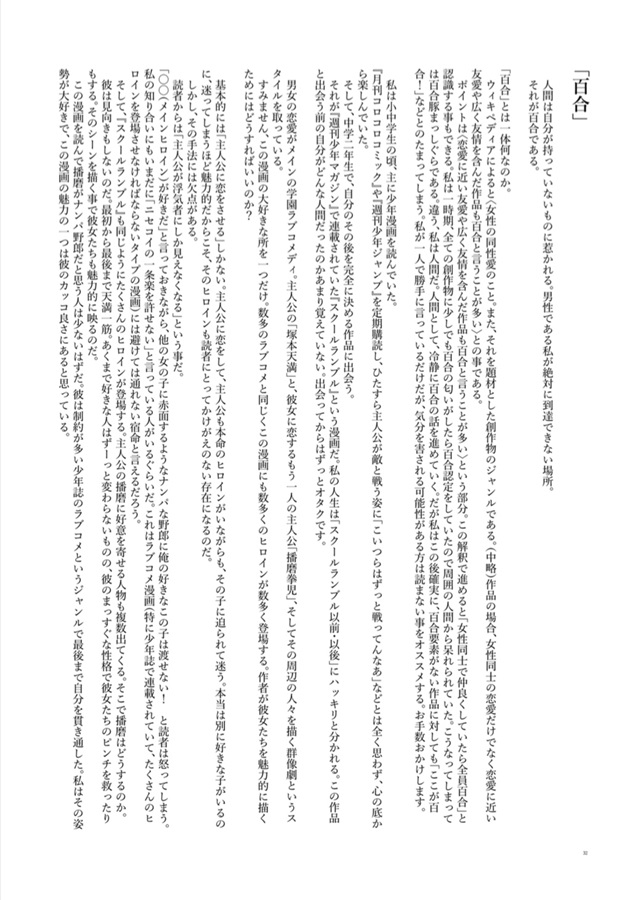 「百合」
人間は自分が持っていないものに惹かれる。男性である私が絶対に到達できない場所。
それが百合である。
「百合」とは一体何なのか。
ウィキペディアによると〈女性の同性愛のこと。また、それを題材とした創作物のジャンルである。（中略）作品の場合、女性同士の恋愛だけでなく恋愛に近い
友愛や広く友情を含んだ作品も百合と言うことが多い〉との事である。
ポイントは〈恋愛に近い友愛や広く友情を含んだ作品も百合と言うことが多い〉という部分。この解釈で進めると「女性同士で仲良くしていたら全員百合」と
認識する事もできる。私は一時期、全ての創作物に少しでも百合の匂いがしたら百合認定をしていたので周囲の人間から呆れられていた。こうなってしまって
は百合豚まっしぐらである。違う、私は人間だ。人間として、冷静に百合の話を進めていく。だが私はこの後確実に、百合要素がない作品に対しても「ここが百
合！」などとのたまってしまう。私が一人で勝手に言っているだけだが、気分を害される可能性がある方は読まない事をオススメする。お手数おかけします。
私は小中学生の頃、主に少年漫画を読んでいた。
『月刊コロコロコミック』や『週刊少年ジャンプ』を定期購読し、ひたすら主人公が敵と戦う姿に「こいつらはずっと戦ってんなあ」などとは全く思わず、心の底か
ら楽しんでいた。
そして、中学二年生で、自分のその後を完全に決める作品に出会う。
それが『週刊少年マガジン』で連載されていた『スクールランブル』という漫画だ。私の人生は「スクールランブル以前・以後」にハッキリと分かれる。この作品
と出会う前の自分がどんな人間だったのかあまり覚えていない。出会ってからはずっとオタクです。
男女の恋愛がメインの学園ラブコメディ。主人公の「塚本天満」と、彼女に恋するもう一人の主人公「播磨拳児」、そしてその周辺の人々を描く群像劇というス
タイルを取っている。
すみません、この漫画の大好きな所を一つだけ。数多のラブコメと同じくこの漫画にも多くのヒロインが数多く登場する。作者が彼女たちを魅力的に描く
ためにはどうすればいいのか？
基本的には「主人公に恋をさせる」しかない。主人公に恋をして、主人公も本命のヒロインがいながらも、その子に迫られて迷う。本当は別に好きな子がいるの
に、迷ってしまうほど魅力的だからこそ、そのヒロインも読者にとってかけがえのない存在になるのだ。
しかし、その手法には欠点がある。
読者からは「主人公が浮気者にしか見えなくなる」という事だ。
「○○（メインヒロイン）が好きだ」と言っておきながら、他の女の子に赤面するようなナンパな野郎に俺の好きなこの子は渡せない！　と読者は怒ってしまう。
私の知り合いにもいまだに「ニセコイの一条楽を許せない」と言っている人がいるぐらいだ。これはラブコメ漫画（特に少年誌で連載されていて、たくさんのヒ
ロインを登場させなければならないタイプの漫画）には避けては通れない宿命と言えるだろう。
そして、『スクールランブル』も同じようにたくさんのヒロインが登場する。主人公の播磨に好意を寄せる人物も複数出てくる。そこで播磨はどうするのか。
彼は見向きもしないのだ。最初から最後まで天満一筋。あくまで好きな人はずーっと変わらないものの、彼のまっすぐな性格で彼女たちのピンチを救ったり
もする。そのシーンを描く事で彼女たちも魅力的に映るのだ。
この漫画を読んで播磨がナンパ野郎だと思う人は少ないはずだ。彼は制約が多い少年誌のラブコメというジャンルで最後まで自分を貫き通した。私はその姿
勢が大好きで、この漫画の魅力の一つは彼のカッコ良さにあると思っている。
32